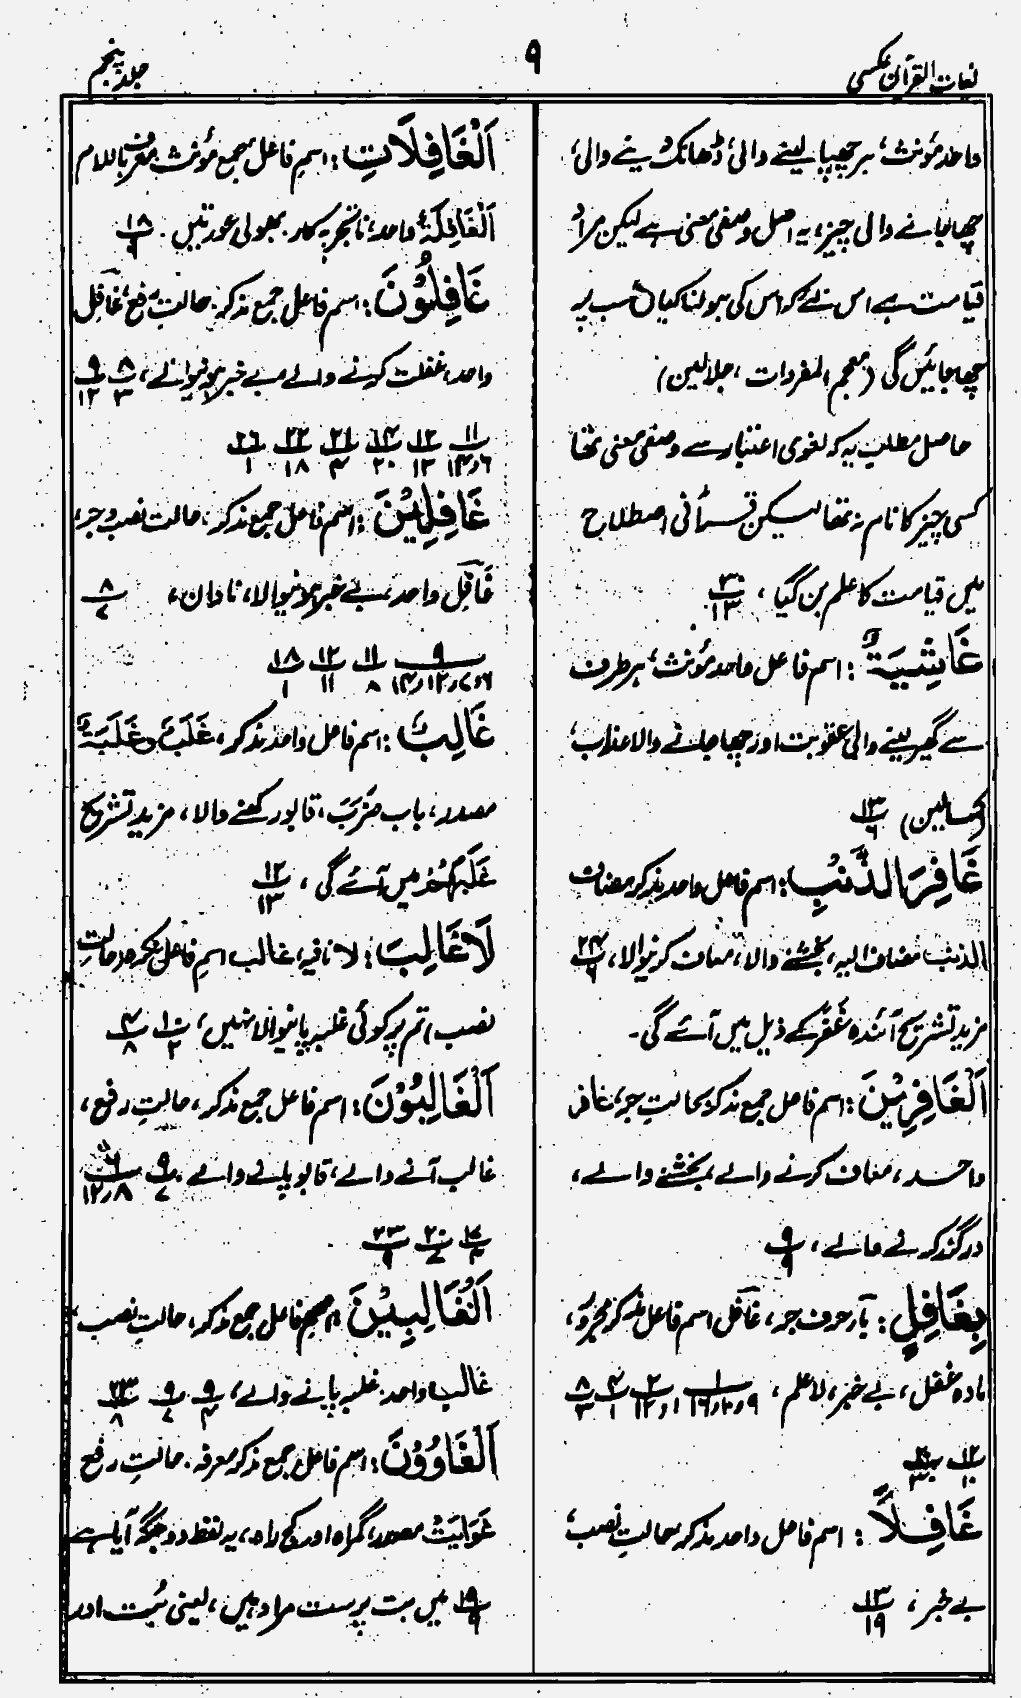 لغات القرآن عکسی
۹
جلد پنجم
واحد مؤنث، ہر چھپا لینے والی، ڈھانک لینے والی،
چھا جانے والی چیز، یہ اصل وصفی معنی ہے لیکن مراد
قیامت ہے اس لئے کہ اس کی ہولناکیاں سب پر
چھا جائیں گی (معجم المفردات، جلالین)
حاصل مطلب یہ کہ لغوی اعتبار سے وصفی معنی تھا
کسی چیز کا نام نہ تھا لیکن قرآنی اصطلاح
میں قیامت کا علم بن گیا، ۳۰/۱۳
غَاشِيَةٌ: اسم فاعل واحد مؤنث، ہر طرف
سے گھیر لینے والی عقوبت اور چھا جانے والا عذاب،
(کمالین) ۱۳/۶
غَافِرِ الذَّنْبِ: اسم فاعل واحد مذکر مضاف
الذنب مضاف الیہ، بخشنے والا، معاف کرنیوالا، ۲۴/۶
مزید تشریح آئندہ غَفَرَ کے ذیل میں آئے گی۔
اَلْغَافِرِيْنَ: اسم فاعل جمع مذکر بحالتِ جر، غافر
واحد، معاف کرنے والے، بخشنے والے،
درگذر کرنے والے، ۹/۹
بِغَافِلٍ: بار حرف جر، غافل اسم فاعل مذکر مجرور،
مادہ غفل، بے خبر، لاعلم، ۱/۹و۱۰و۱۶ ۲/۱و۱۲ ۴/۱ ۸/۳
۱۲/۱۰ ۲۰/۳
غَافِلًا: اسم فاعل واحد مذکر بحالتِ نصب،
بے خبر، ۱۳/۱۹
اَلْغَافِلَاتِ: اسمِ فاعل جمع مؤنث معرف باللام
اَلْغَافِلَةُ واحد، ناتجربہ کار، بھولی عورتیں۔ ۱۸/۹
غَافِلُوْنَ: اسم فاعل جمع مذکر، حالتِ رفع، غافل
واحد، غفلت کرنے والے، بے خبر ہونیوالے، ۸/۳ ۹/۱۲
۱۱/۶و۱۴ ۱۲/۱۳ ۱۴/۲۰ ۲۱/۴ ۲۲/۱۸ ۲۶/۱
غَافِلِيْنَ: اسم فاعل جمع مذکر، حالت نصب و جر،
غافل واحد، بے خبر ہونیوالا، نادان، ۸/۷
۹/۶و۷و۱۲و۱۴ ۱۱/۸ ۱۲/۱۱ ۱۸/۱
غَالِبٌ: اسم فاعل واحد مذکر، غَلَبٌ و غَلَبَةٌ
مصدر، باب ضَرَبَ، قابو رکھنے والا، مزید تشریح
غَلَبِهِمْ میں آئے گی، ۱۲/۱۳
لَا غَالِبَ: لا نافیہ، غالب اسمِ فاعل نکرہ حالتِ
نصب، تم پر کوئی غلبہ پانیوالا نہیں، ۱۰/۲ ۴/۸
اَلْغَالِبُوْنَ: اسم فاعل جمع مذکر، حالتِ رفع،
غالب آنے والے، قابو پانے والے۔ ۹/۷ ۶/۸و۱۲
۱۷/۴ ۲۰/۷ ۲۳/۹
اَلْغَالِبِيْنَ: اسم فاعل جمع مذکر، حالتِ نصب،
غالب واحد، غلبہ پانے والے، ۹/۴ ۹/۷ ۲۳/۸
اَلْغَاوُوْنَ: اسم فاعل جمع مذکر معرفہ، حالتِ رفع
غَوَايَتٌ مصدر، گمراہ اور کج راہ، یہ لفظ دو جگہ آیا ہے
۱۹/۹ میں بت پرست مراد ہیں، یعنی بُت اور